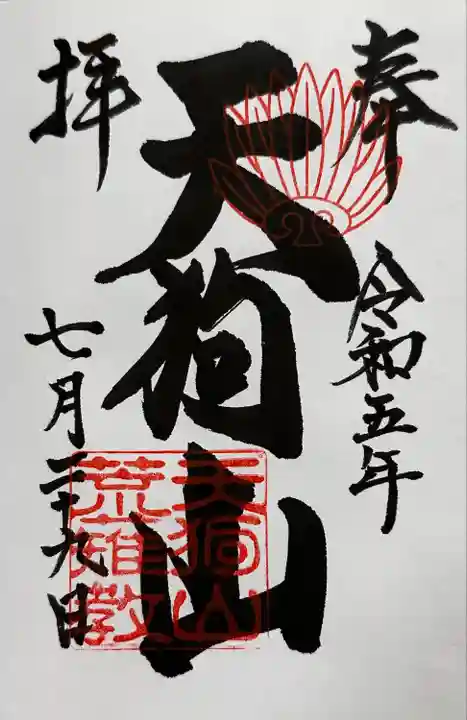 奉拝
令和五年
天狗山
七月二十九日
天狗山
荒薙教